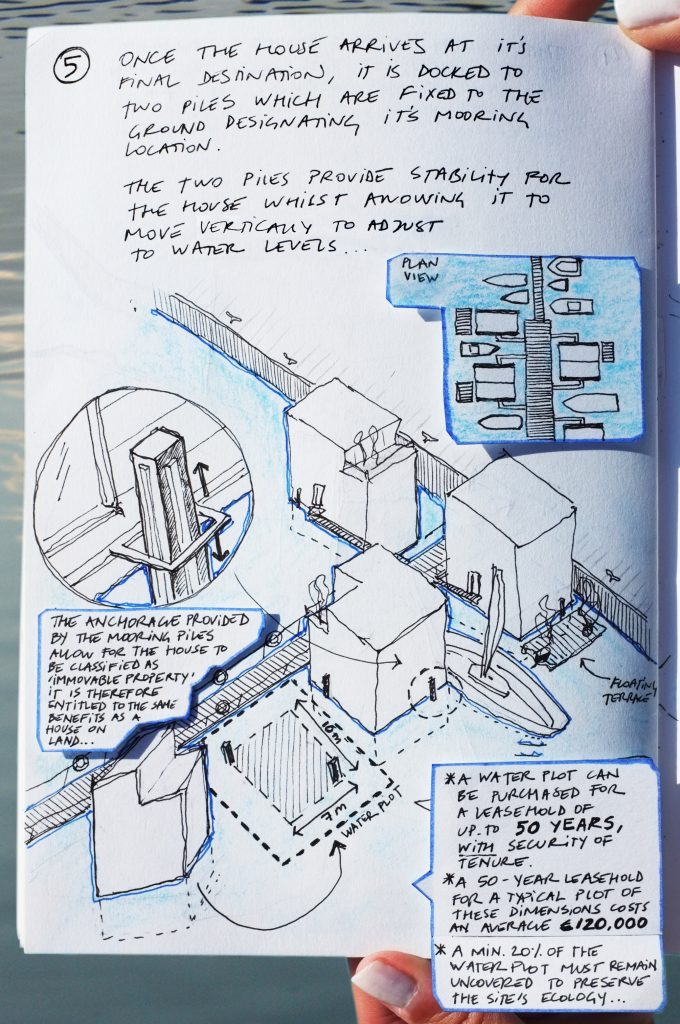 5
ONCE THE HOUSE ARRIVES AT IT'S
FINAL DESTINATION, IT IS DOCKED TO
TWO PILES WHICH ARE FIXED TO THE
GROUND DESIGNATING IT'S MOORING
LOCATION.
THE TWO PILES PROVIDE STABILITY FOR
THE HOUSE WHILST ALLOWING IT TO
MOVE VERTICALLY TO ADJUST
TO WATER LEVELS...
PLAN
VIEW
THE ANCHORAGE PROVIDED
BY THE MOORING PILES
ALLOW FOR THE HOUSE TO
BE CLASSIFIED AS
'IMMOVABLE PROPERTY'
IT IS THEREFORE
ENTITLED TO THE SAME
BENEFITS AS A
HOUSE ON
LAND...
FLOATING
TERRACE
10m
7m
WATER PLOT
* A WATER PLOT CAN
BE PURCHASED FOR
A LEASEHOLD OF
UP TO 50 YEARS,
WITH SECURITY OF
TENURE.
* A 50-YEAR LEASEHOLD
FOR A TYPICAL PLOT OF
THESE DIMENSIONS COSTS
AN AVERAGE €120,000
* A MIN. 20% OF THE
WATER PLOT MUST REMAIN
UNCOVERED TO PRESERVE
THE SITE'S ECOLOGY...